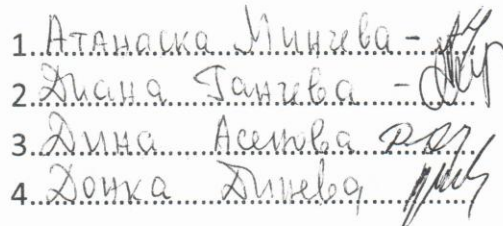 1 Атанаска Минчева -
2 Диана Ганчева -
3 Дина Асенова
4 Донка Динева